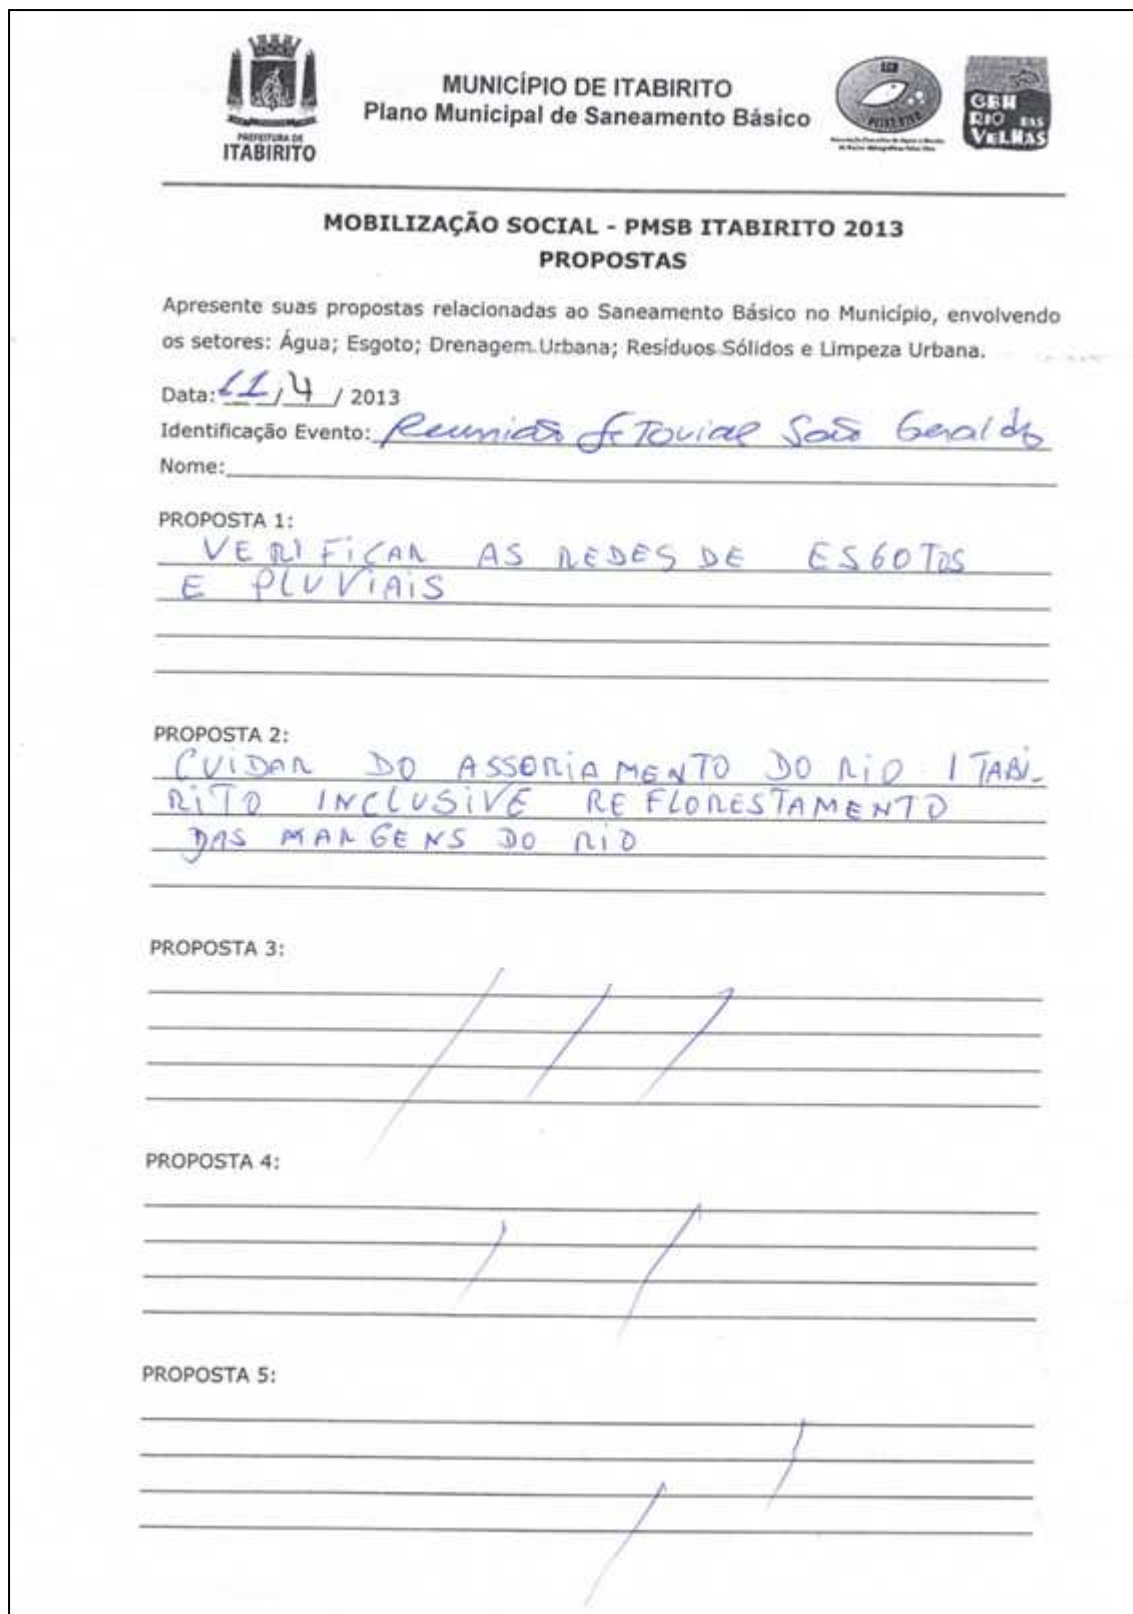 PREFEITURA DE
ITABIRITO
MUNICÍPIO DE ITABIRITO
Plano Municipal de Saneamento Básico
PEIXE VIVO
CBH
RIO DAS
VELHAS
MOBILIZAÇÃO SOCIAL - PMSB ITABIRITO 2013
PROPOSTAS
Apresente suas propostas relacionadas ao Saneamento Básico no Município, envolvendo
os setores: Água; Esgoto; Drenagem Urbana; Resíduos Sólidos e Limpeza Urbana.
Data: 11/4/2013
Identificação Evento: Reunião Setorial São Geraldo
Nome:
PROPOSTA 1:
VERIFICAR AS REDES DE ESGOTOS
E PLUVIAIS
PROPOSTA 2:
CUIDAR DO ASSORIAMENTO DO RIO ITABI-
RITO INCLUSIVE REFLORESTAMENTO
DAS MARGENS DO RIO
PROPOSTA 3:
PROPOSTA 4:
PROPOSTA 5: